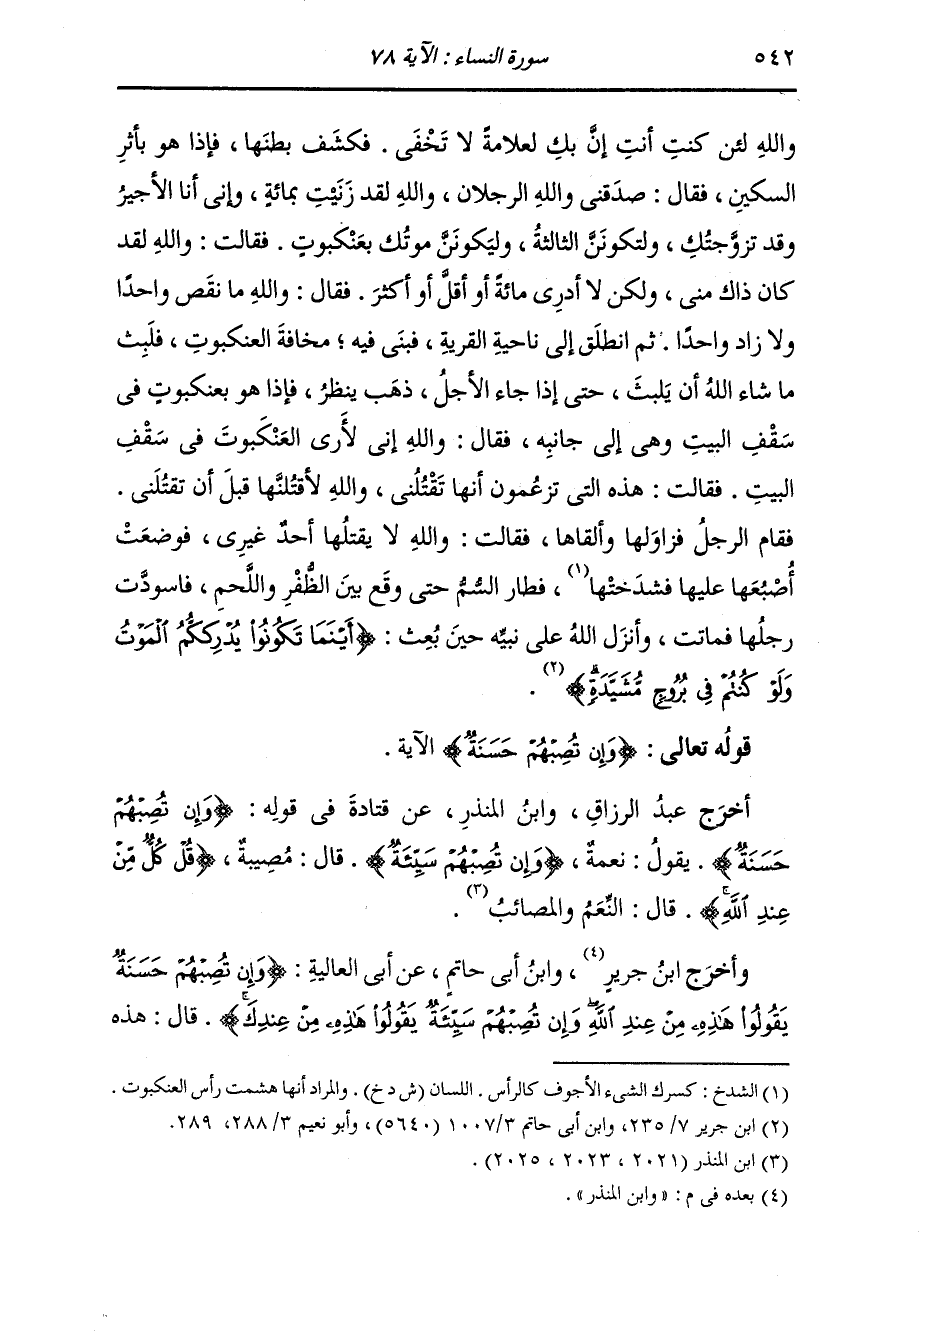 ٥٤٢ سورة النساء : الآية ٧٨
واللهِ لئن كنتِ أنتِ إنَّ بكِ لعلامةً لا تَخْفَى . فكشَف بطنَها ، فإذا هو بأثرِ
السكينِ ، فقال : صدَقنى واللهِ الرجلان ، واللهِ لقد زَنَيْتِ بمائةٍ ، وإنى أنا الأجيرُ
وقد تزوَّجتُكِ ، ولتكونَنَّ الثالثةُ ، وليَكونَنَّ موتُك بعَنْكبوتٍ . فقالت : واللهِ لقد
كان ذاك منى ، ولكن لا أدرِى مائةً أو أقلَّ أو أكثرَ . فقال : واللهِ ما نقَص واحدًا
ولا زاد واحدًا . ثم انطلَق إلى ناحيةِ القريةِ ، فبنَى فيه ؛ مخافةَ العنكبوتِ ، فلَبِث
ما شاء اللهُ أن يَلبثَ ، حتى إذا جاء الأجلُ ، ذهَب ينظرُ ، فإذا هو بعنكبوتٍ فى
سَقْفِ البيتِ وهى إلى جانبِه ، فقال : واللهِ إنى لأَرى العَنْكَبوتَ فى سَقْفِ
البيتِ . فقالت : هذه التى تزعُمون أنها تَقْتُلُنى ، واللهِ لأقتُلنَّها قبلَ أن تقتُلَنى .
فقام الرجلُ فزاوَلها وألقاها ، فقالت : واللهِ لا يقتلُها أحدٌ غيرِى ، فوضعَتْ
أُصْبُعَها عليها فشدَختْها (١) ، فطار السُّمُّ حتى وقَع بينَ الظُّفْرِ واللَّحمِ ، فاسودَّت
رجلُها فماتت ، وأنزَل اللهُ على نبيِّه حينَ بُعِث : ﴿أَيْنَمَا تَكُونُوا۟ يُدْرِككُّمُ ٱلْمَوْتُ
وَلَوْ كُنتُمْ فِى بُرُوجٍ مُّشَيَّدَةٍۗ﴾ (٢) .
قولُه تعالى : ﴿وَإِن تُصِبْهُمْ حَسَنَةٌ﴾ الآية .
أخرَج عبدُ الرزاقِ ، وابنُ المنذرِ ، عن قتادةَ فى قولِه : ﴿وَإِن تُصِبْهُمْ
حَسَنَةٌ﴾ . يقولُ : نعمةٌ ، ﴿وَإِن تُصِبْهُمْ سَيِّئَةٌ﴾ . قال : مُصِيبةٌ ، ﴿قُلْ كُلٌّ مِّنْ
عِندِ ٱللَّهِۚ﴾ . قال : النِّعَمُ والمصائبُ (٣) .
وأخرَج ابنُ جريرٍ (٤) ، وابنُ أبى حاتمٍ ، عن أبى العاليةِ : ﴿وَإِن تُصِبْهُمْ حَسَنَةٌ
يَقُولُوا۟ هَٰذِهِۦ مِنْ عِندِ ٱللَّهِۖ وَإِن تُصِبْهُمْ سَيِّئَةٌ يَقُولُوا۟ هَٰذِهِۦ مِنْ عِندِكَۚ﴾ . قال : هذه
(١) الشدخ : كسرك الشىء الأجوف كالرأس . اللسان (ش د خ) . والمراد أنها هشمت رأس العنكبوت .
(٢) ابن جرير ٧/ ٢٣٥، وابن أبى حاتم ٣/ ١٠٠٧ (٥٦٤٠) ، وأبو نعيم ٣/ ٢٨٨، ٢٨٩.
(٣) ابن المنذر (٢٠٢١ ، ٢٠٢٣ ، ٢٠٢٥) .
(٤) بعده فى م : « وابن المنذر» .